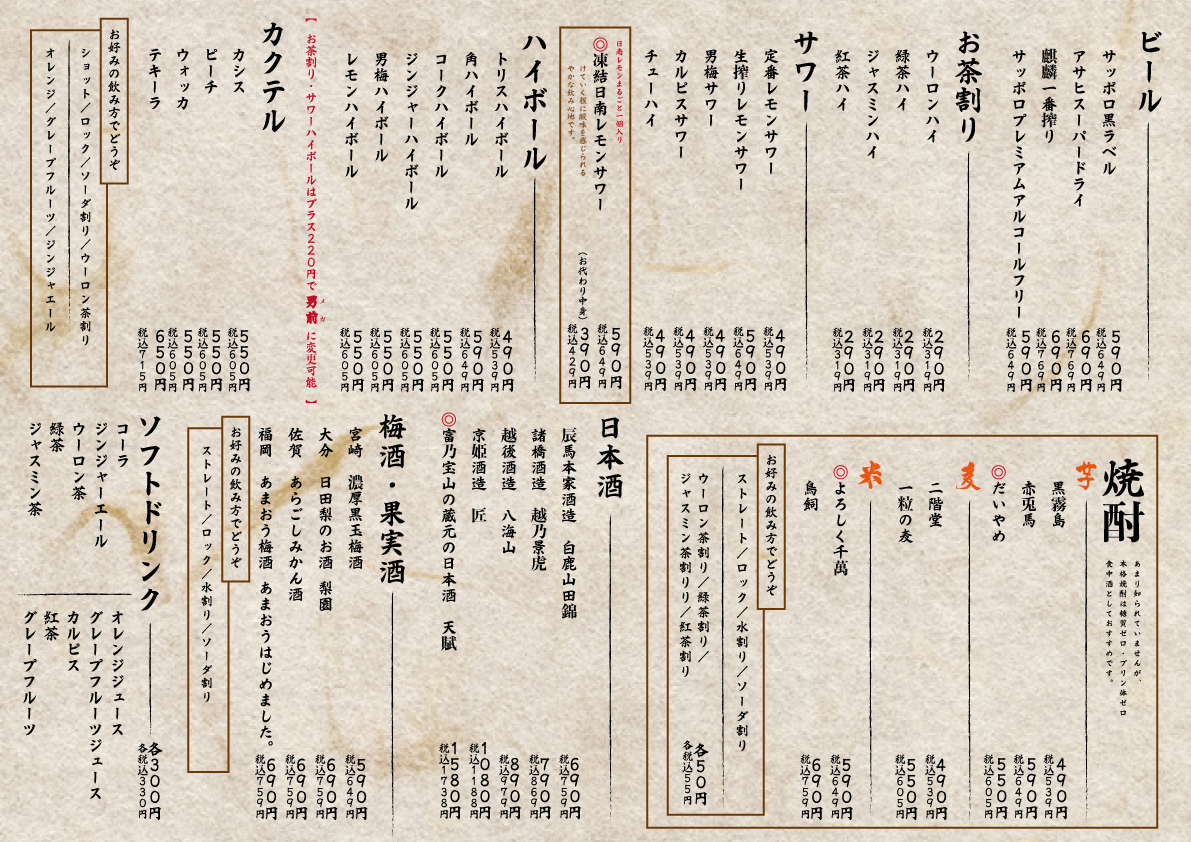 ビール
サッポロ黒ラベル 590円 税込649円
アサヒスーパードライ 690円 税込769円
麒麟一番搾り 690円 税込769円
サッポロプレミアムアルコールフリー 590円 税込649円
お茶割り
ウーロンハイ 290円 税込319円
緑茶ハイ 290円 税込319円
ジャスミンハイ 290円 税込319円
紅茶ハイ 290円 税込319円
サワー
定番レモンサワー 490円 税込539円
生搾りレモンサワー 590円 税込649円
男梅サワー 490円 税込539円
カルピスサワー 490円 税込539円
チューハイ 490円 税込539円
日南レモンまるごと一個入り
◎凍結日南レモンサワー 590円 税込649円
(お代わり中身) 390円 税込429円
けていく程に酸味を感じられる
やかな飲み心地です。
ハイボール
トリスハイボール 490円 税込539円
角ハイボール 590円 税込649円
コークハイボール 550円 税込605円
ジンジャーハイボール 550円 税込605円
男梅ハイボール 550円 税込605円
レモンハイボール 550円 税込605円
【お茶割り・サワーハイボールはプラス220円で男前に変更可能】
メガ
カクテル
カシス 550円 税込605円
ピーチ 550円 税込605円
ウォッカ 550円 税込605円
テキーラ 650円 税込715円
お好みの飲み方でどうぞ
ショット/ロック/ソーダ割り/ウーロン茶割り
オレンジ/グレープフルーツ/ジンジャエール
焼酎
あまり知られていませんが、
本格焼酎は糖質ゼロ・プリン体ゼロ
食中酒としておすすめです。
芋
黒霧島 490円 税込539円
赤兎馬 590円 税込649円
◎だいやめ 550円 税込605円
麦
二階堂 490円 税込539円
一粒の麦 550円 税込605円
米
◎よろしく千萬 590円 税込649円
鳥飼 690円 税込759円
お好みの飲み方でどうぞ
ストレート/ロック/水割り/ソーダ割り
ウーロン茶割り/緑茶割り/
ジャスミン茶割り/紅茶割り
各50円 各税込55円
日本酒
辰馬本家酒造 白鹿山田錦 690円 税込759円
諸橋酒造 越乃景虎 790円 税込869円
越後酒造 八海山 890円 税込979円
京姫酒造 匠 1080円 税込1188円
◎富乃宝山の蔵元の日本酒 天賦 1580円 税込1738円
梅酒・果実酒
宮崎 濃厚黒玉梅酒 590円 税込649円
大分 日田梨のお酒 梨園 690円 税込759円
佐賀 あらごしみかん酒 690円 税込759円
福岡 あまおう梅酒 あまおうはじめました。 690円 税込759円
お好みの飲み方でどうぞ
ストレート/ロック/水割り/ソーダ割り
ソフトドリンク 各300円 各税込330円
コーラ
ジンジャーエール
ウーロン茶
緑茶
ジャスミン茶
オレンジジュース
グレープフルーツジュース
カルピス
紅茶
グレープフルーツ